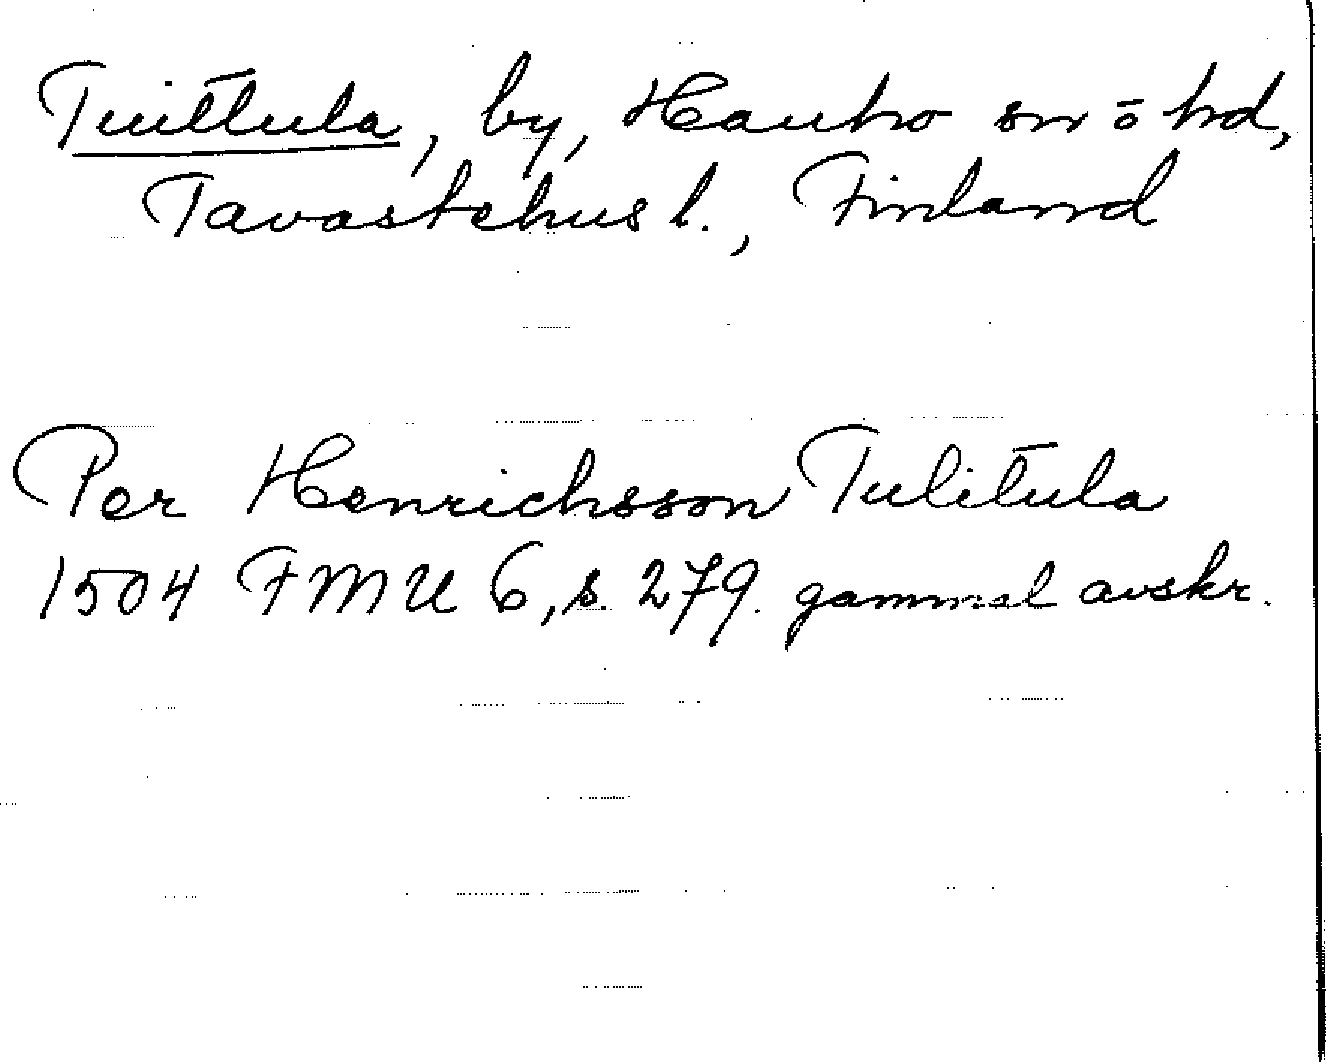 Tuittula, by, Hauho sn ō hd,
Tavastehus l., Finland
Per Henrichsson Tulitula
1504 FMU 6, s. 279. gammal avskr.